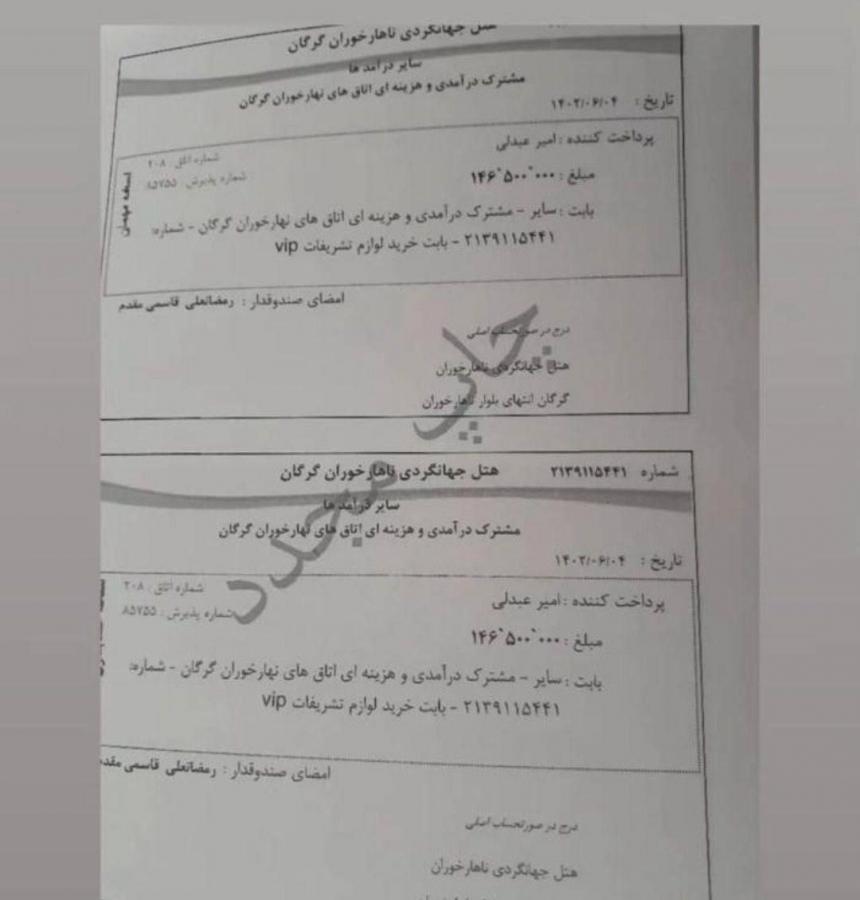 هتل جهانگردی ناهارخوران گرگان
سایر درآمد ها
مشترک درآمدی و هزینه ای اتاق های نهارخوران گرگان
تاریخ : ۱۴۰۲/۰۶/۰۴
پرداخت کننده : امیر عبدلی
شماره اتاق : ۲۰۸
مبلغ : ۱۴۶٬۵۰۰٬۰۰۰
شماره پذیرش : ۸۵۷۵۵
نسخه مهمان
بابت : سایر - مشترک درآمدی و هزینه ای اتاق های نهارخوران گرگان - شماره:
۲۱۳۹۱۱۵۴۴۱ - بابت خرید لوازم تشریفات vip
امضای صندوقدار : رمضانعلی قاسمی مقدم
درج در صورتحساب اصلی
هتل جهانگردی ناهارخوران
گرگان انتهای بلوار ناهارخوران
چاپ مجدد
شماره ۲۱۳۹۱۱۵۴۴۱ هتل جهانگردی ناهارخوران گرگان
سایر درآمد ها
مشترک درآمدی و هزینه ای اتاق های نهارخوران گرگان
تاریخ : ۱۴۰۲/۰۶/۰۴
پرداخت کننده : امیر عبدلی
شماره اتاق : ۲۰۸
مبلغ : ۱۴۶٬۵۰۰٬۰۰۰
شماره پذیرش : ۸۵۷۵۵
بابت : سایر - مشترک درآمدی و هزینه ای اتاق های نهارخوران گرگان - شماره:
۲۱۳۹۱۱۵۴۴۱ - بابت خرید لوازم تشریفات vip
امضای صندوقدار : رمضانعلی قاسمی مقدم
درج در صورتحساب اصلی
هتل جهانگردی ناهارخوران